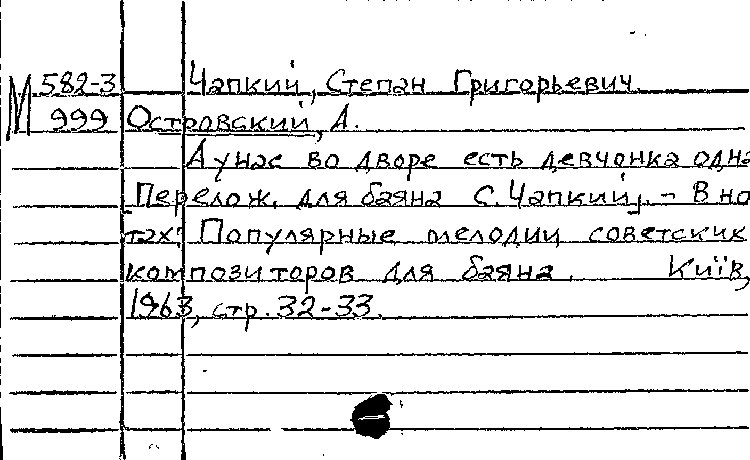 М 582-3 Чапкий, Степан Григорьевич
999 Островский, А.
А у нас во дворе есть девчонка одна
[Перелож. для баяна С. Чапкий]. - В но
тах: Популярные мелодии советских
композиторов для баяна. Київ,
1963, стр. 32-33.